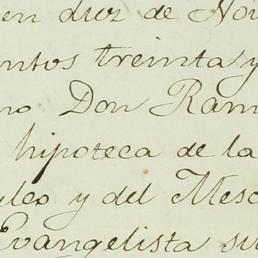 en diez de Nov
ntos treinta y
no Don Ram
hipoteca de la
uleo y del Mesc
Evangelista su